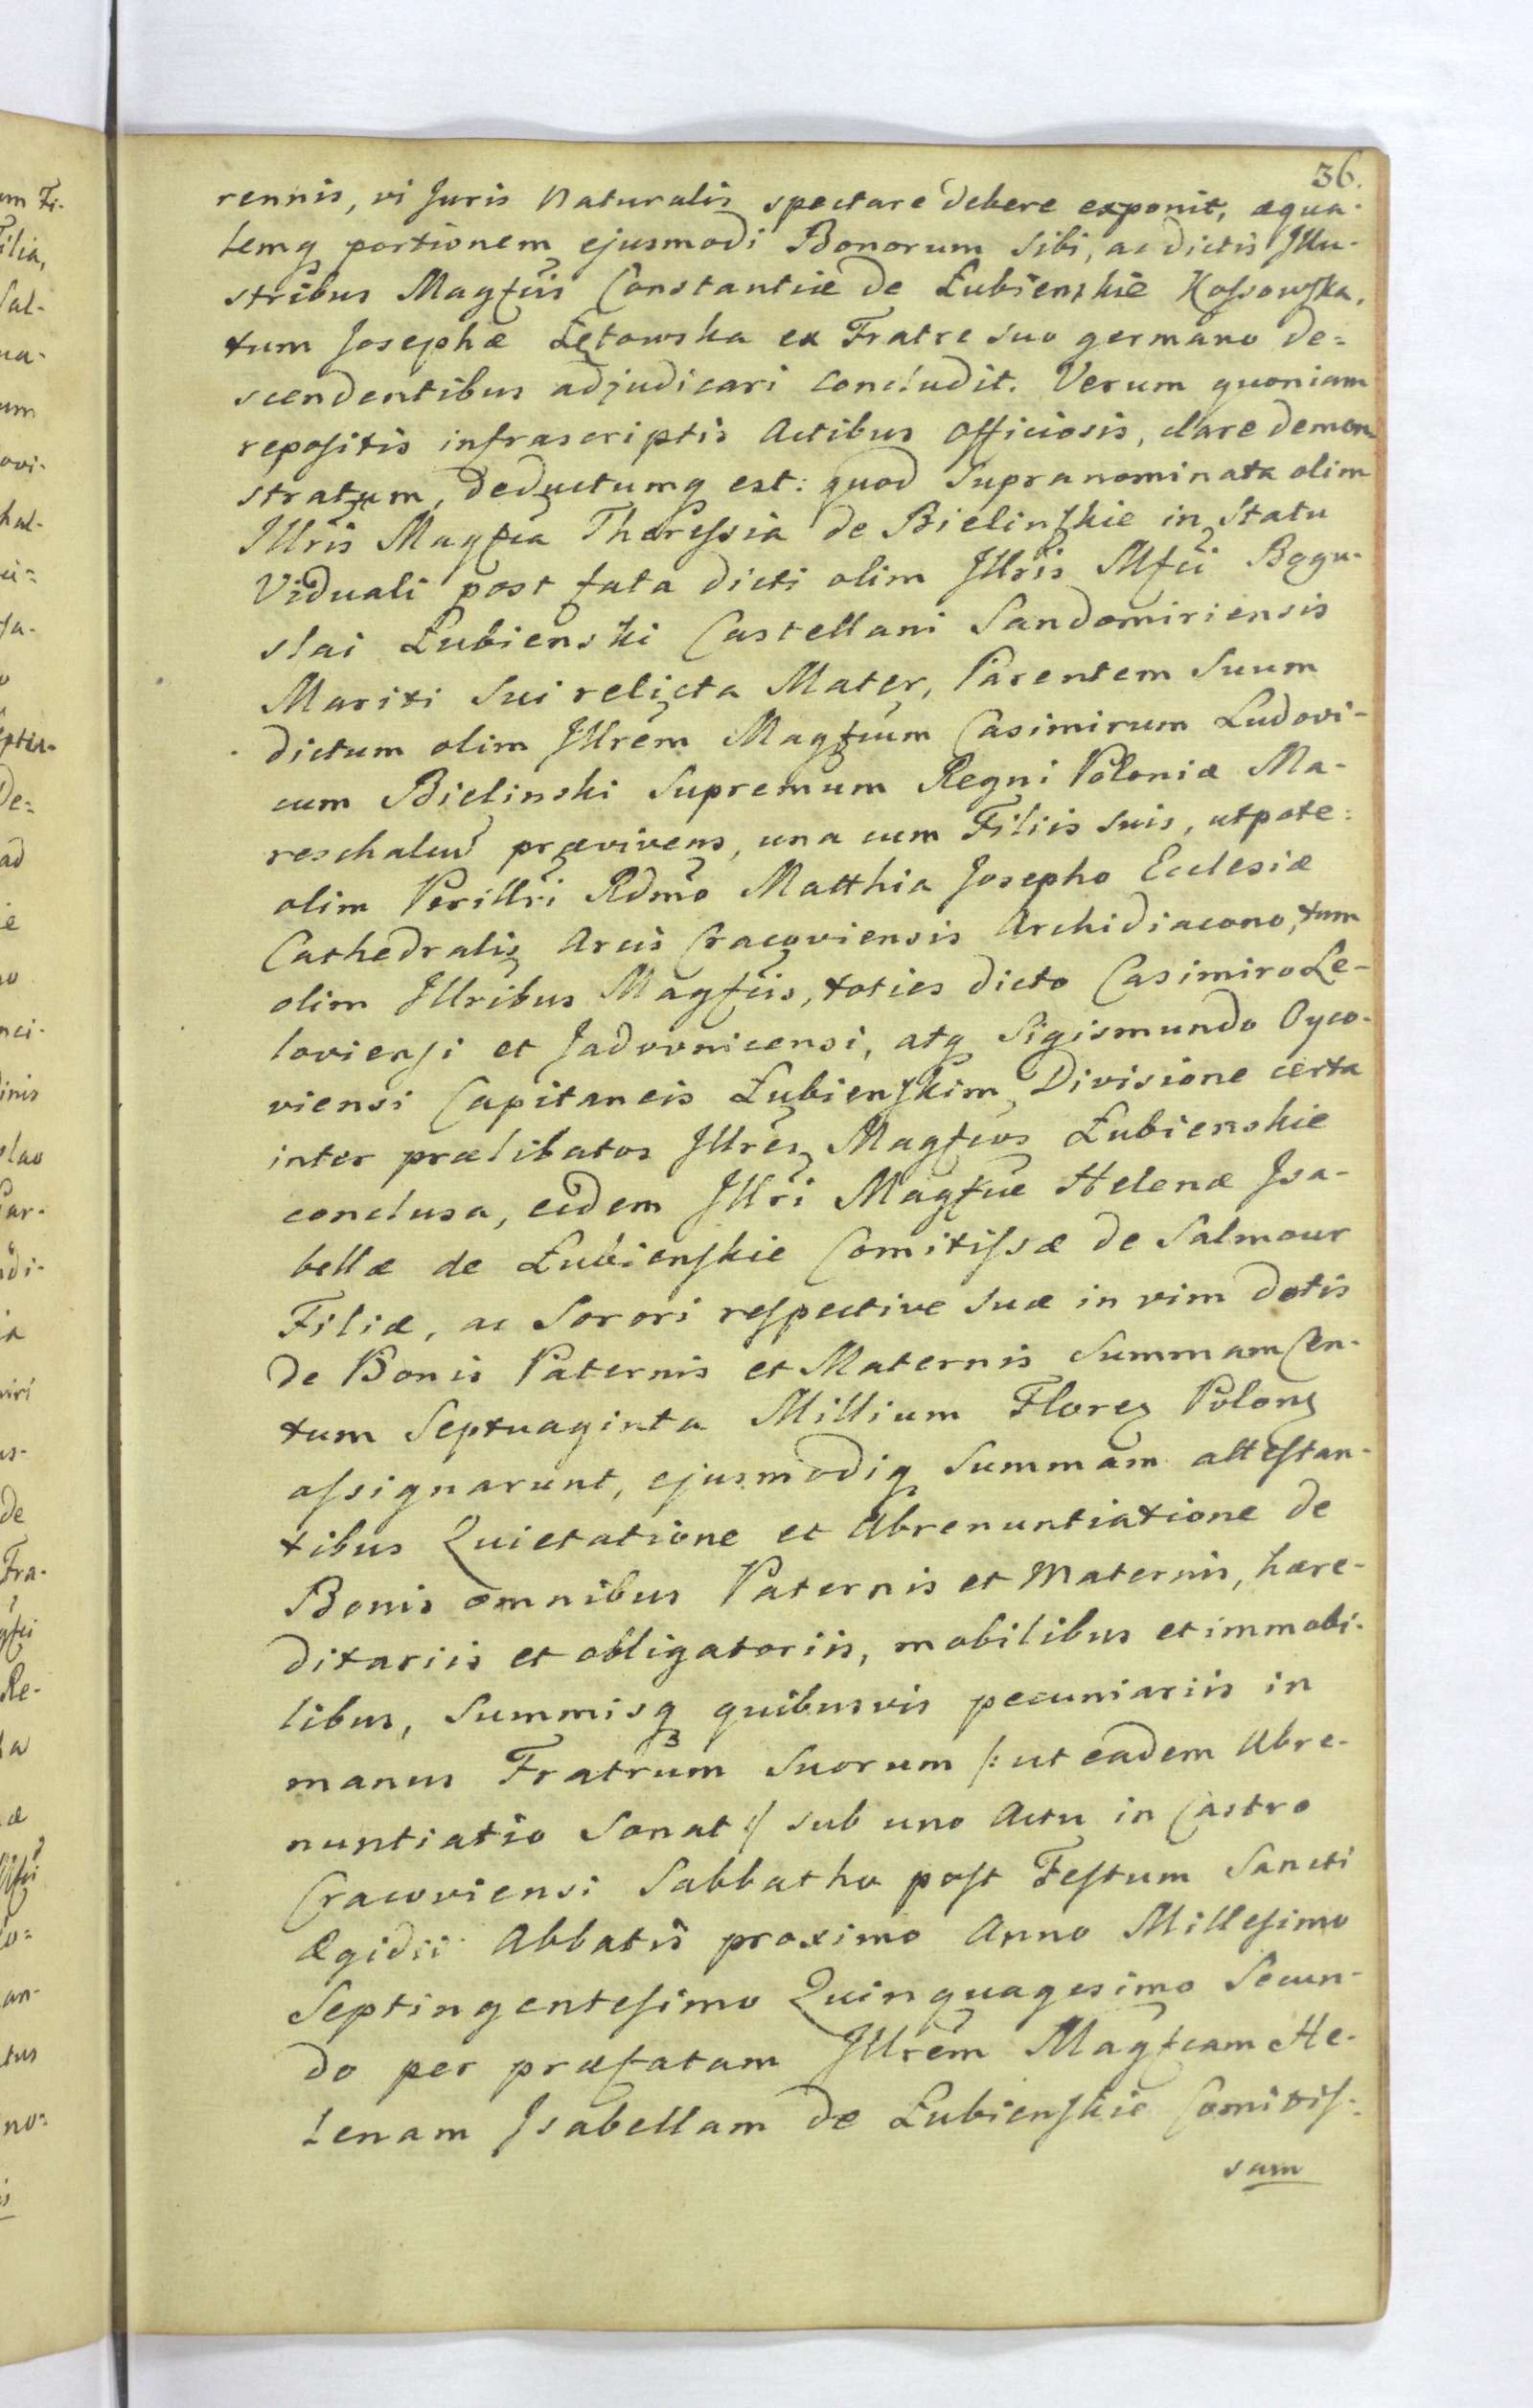 36.
rennis, vi Juris Naturalis spectare debere exponit, æqua-
lemq portionem ejusmodi Bonorum sibi, ac dictis Illu-
stribus Magfcis Constantiæ de Łubienskie Kossowska,
tum Josephæ Łętowska ex Fratre suo germano de=
scendentibus adjudicari concludit. Verum quoniam
repositis infrascriptis Actibus officiosis, clare demon-
stratum, deductumq est: quod supranominata olim
Illris Magfca Theressia de Bielinskie in Statu
Viduali post fata dicti olim Illris Mfci Bogu-
slai Łubienski Castellani Sandomiriensis
Mariti sui relicta Mater, Parentem suum
dictum olim Illrem Magfcum Casimirum Ludovi-
cum Bielinski Supremum Regni Poloniæ Ma-
reschalcum prævivens, una cum Filiis suis, utpote:
olim Perillri Rdmo Matthia Josepho Ecclesiæ
Cathedralis Arcis Cracoviensis Archidiacono, tum
olim Illribus Magfcis, toties dicto Casimiro Le-
loviensi et Jadovnicensi, atq Sigismundo Oyco-
viensi Capitaneis Łubienskim, Divisione certa
inter prælibatos Illres Magfcos Łubienskie
conclusa, eidem Illri Magfcæ Helenæ Isa-
bellæ de Łubienskie Comitissæ de Salmour
Filiæ, ac Sorori respective suæ in vim dotis
de Bonis Paternis et Maternis Summam Cen-
tum Septuaginta Millium Floren Polon
assignarunt, ejusmodiq Summam attestan-
tibus Quietatione et Abrenuntiatione de
Bonis omnibus Paternis et Maternis, hære-
ditariis et obligatoriis, mobilibus et immobi-
libus, Summisq quibusvis pecuniariis in
manus Fratrum suorum /: ut eadem Abre-
nuntiatio sonat :/ sub uno Actu in Castro
Cracoviensi Sabbatho post Festum Sancti
Ægidii Abbatis proximo Anno Millesimo
Septingentesimo Quinquagesimo Secun-
do per præfatam Illrem Magfcam He-
lenam Isabellam de Łubienskie Comitis-
sam